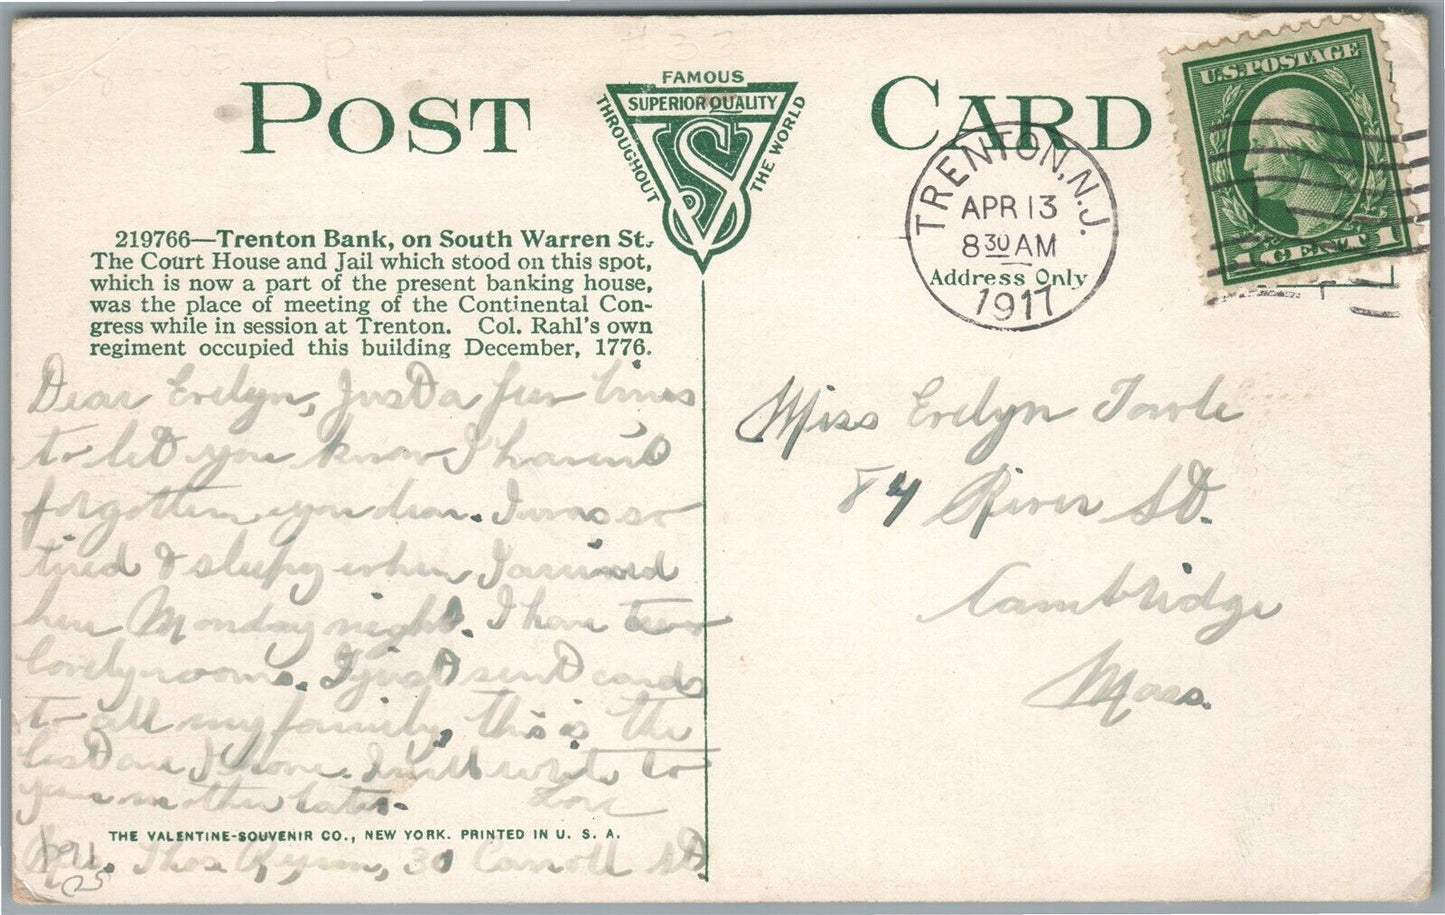 #33
POST CARD
FAMOUS
SUPERIOR QUALITY
THROUGHOUT
THE WORLD
VS
U.S. POSTAGE
1 CENT 1
TRENTON, N.J.
APR 13
8 30 AM
1917
Address Only
219766—Trenton Bank, on South Warren St.
The Court House and Jail which stood on this spot,
which is now a part of the present banking house,
was the place of meeting of the Continental Con-
gress while in session at Trenton. Col. Rahl's own
regiment occupied this building December, 1776.
Dear Evelyn, Just a few lines
to let you know I haven't
forgotten you dear. I was so
tired & sleepy when I arrived
here Monday night. I have two
lovely rooms. I just sent cards
to all my family, this is the
last one I have. I will write to
your mother later.
Love
Mrs. Thos 30 Carroll St.
Miss Evelyn Towle
84 River St.
Cambridge
Mass.
THE VALENTINE-SOUVENIR CO., NEW YORK. PRINTED IN U. S. A.